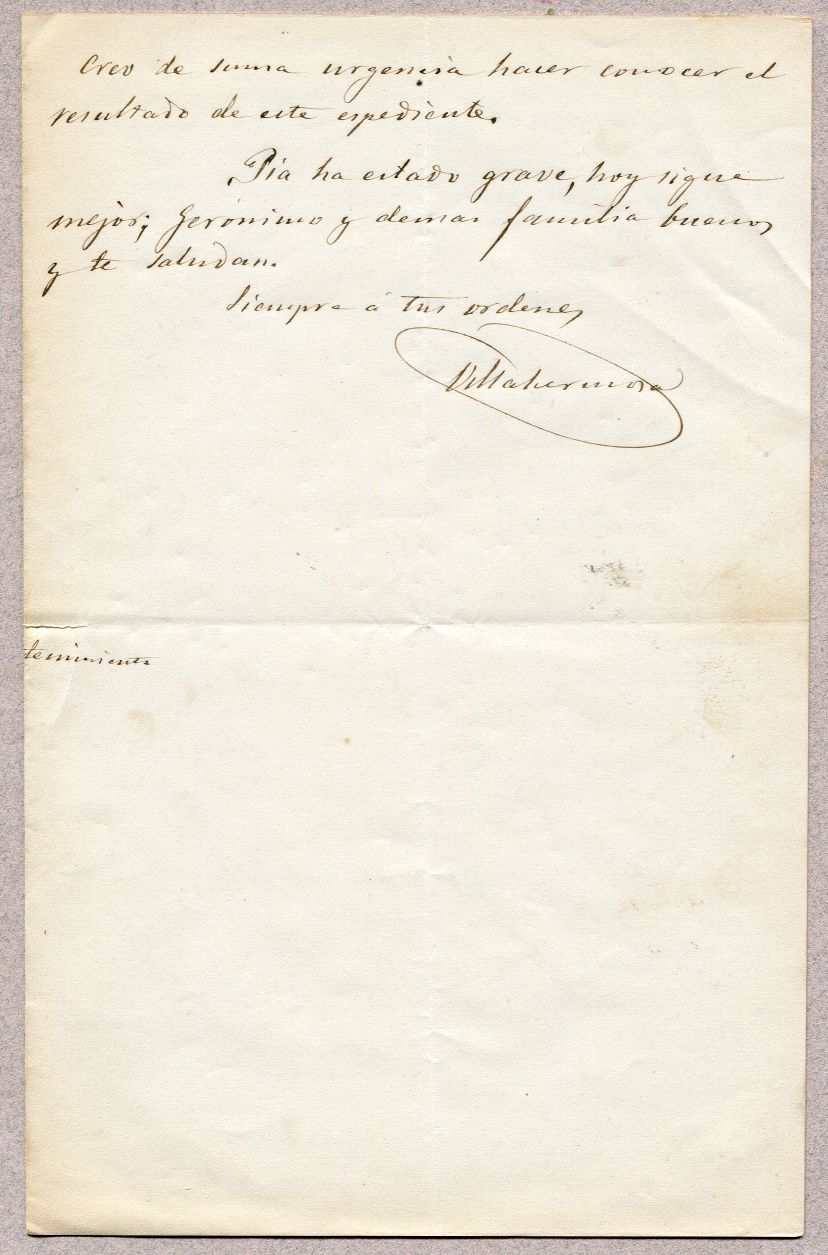 Creo de suma urgencia hacer conocer el
resultado de este espediente.
Pia ha estado grave, hoy sigue
mejor; Gerónimo y demas familia buenos
y te saludan.
Siempre á tus ordenes
Villahermosa